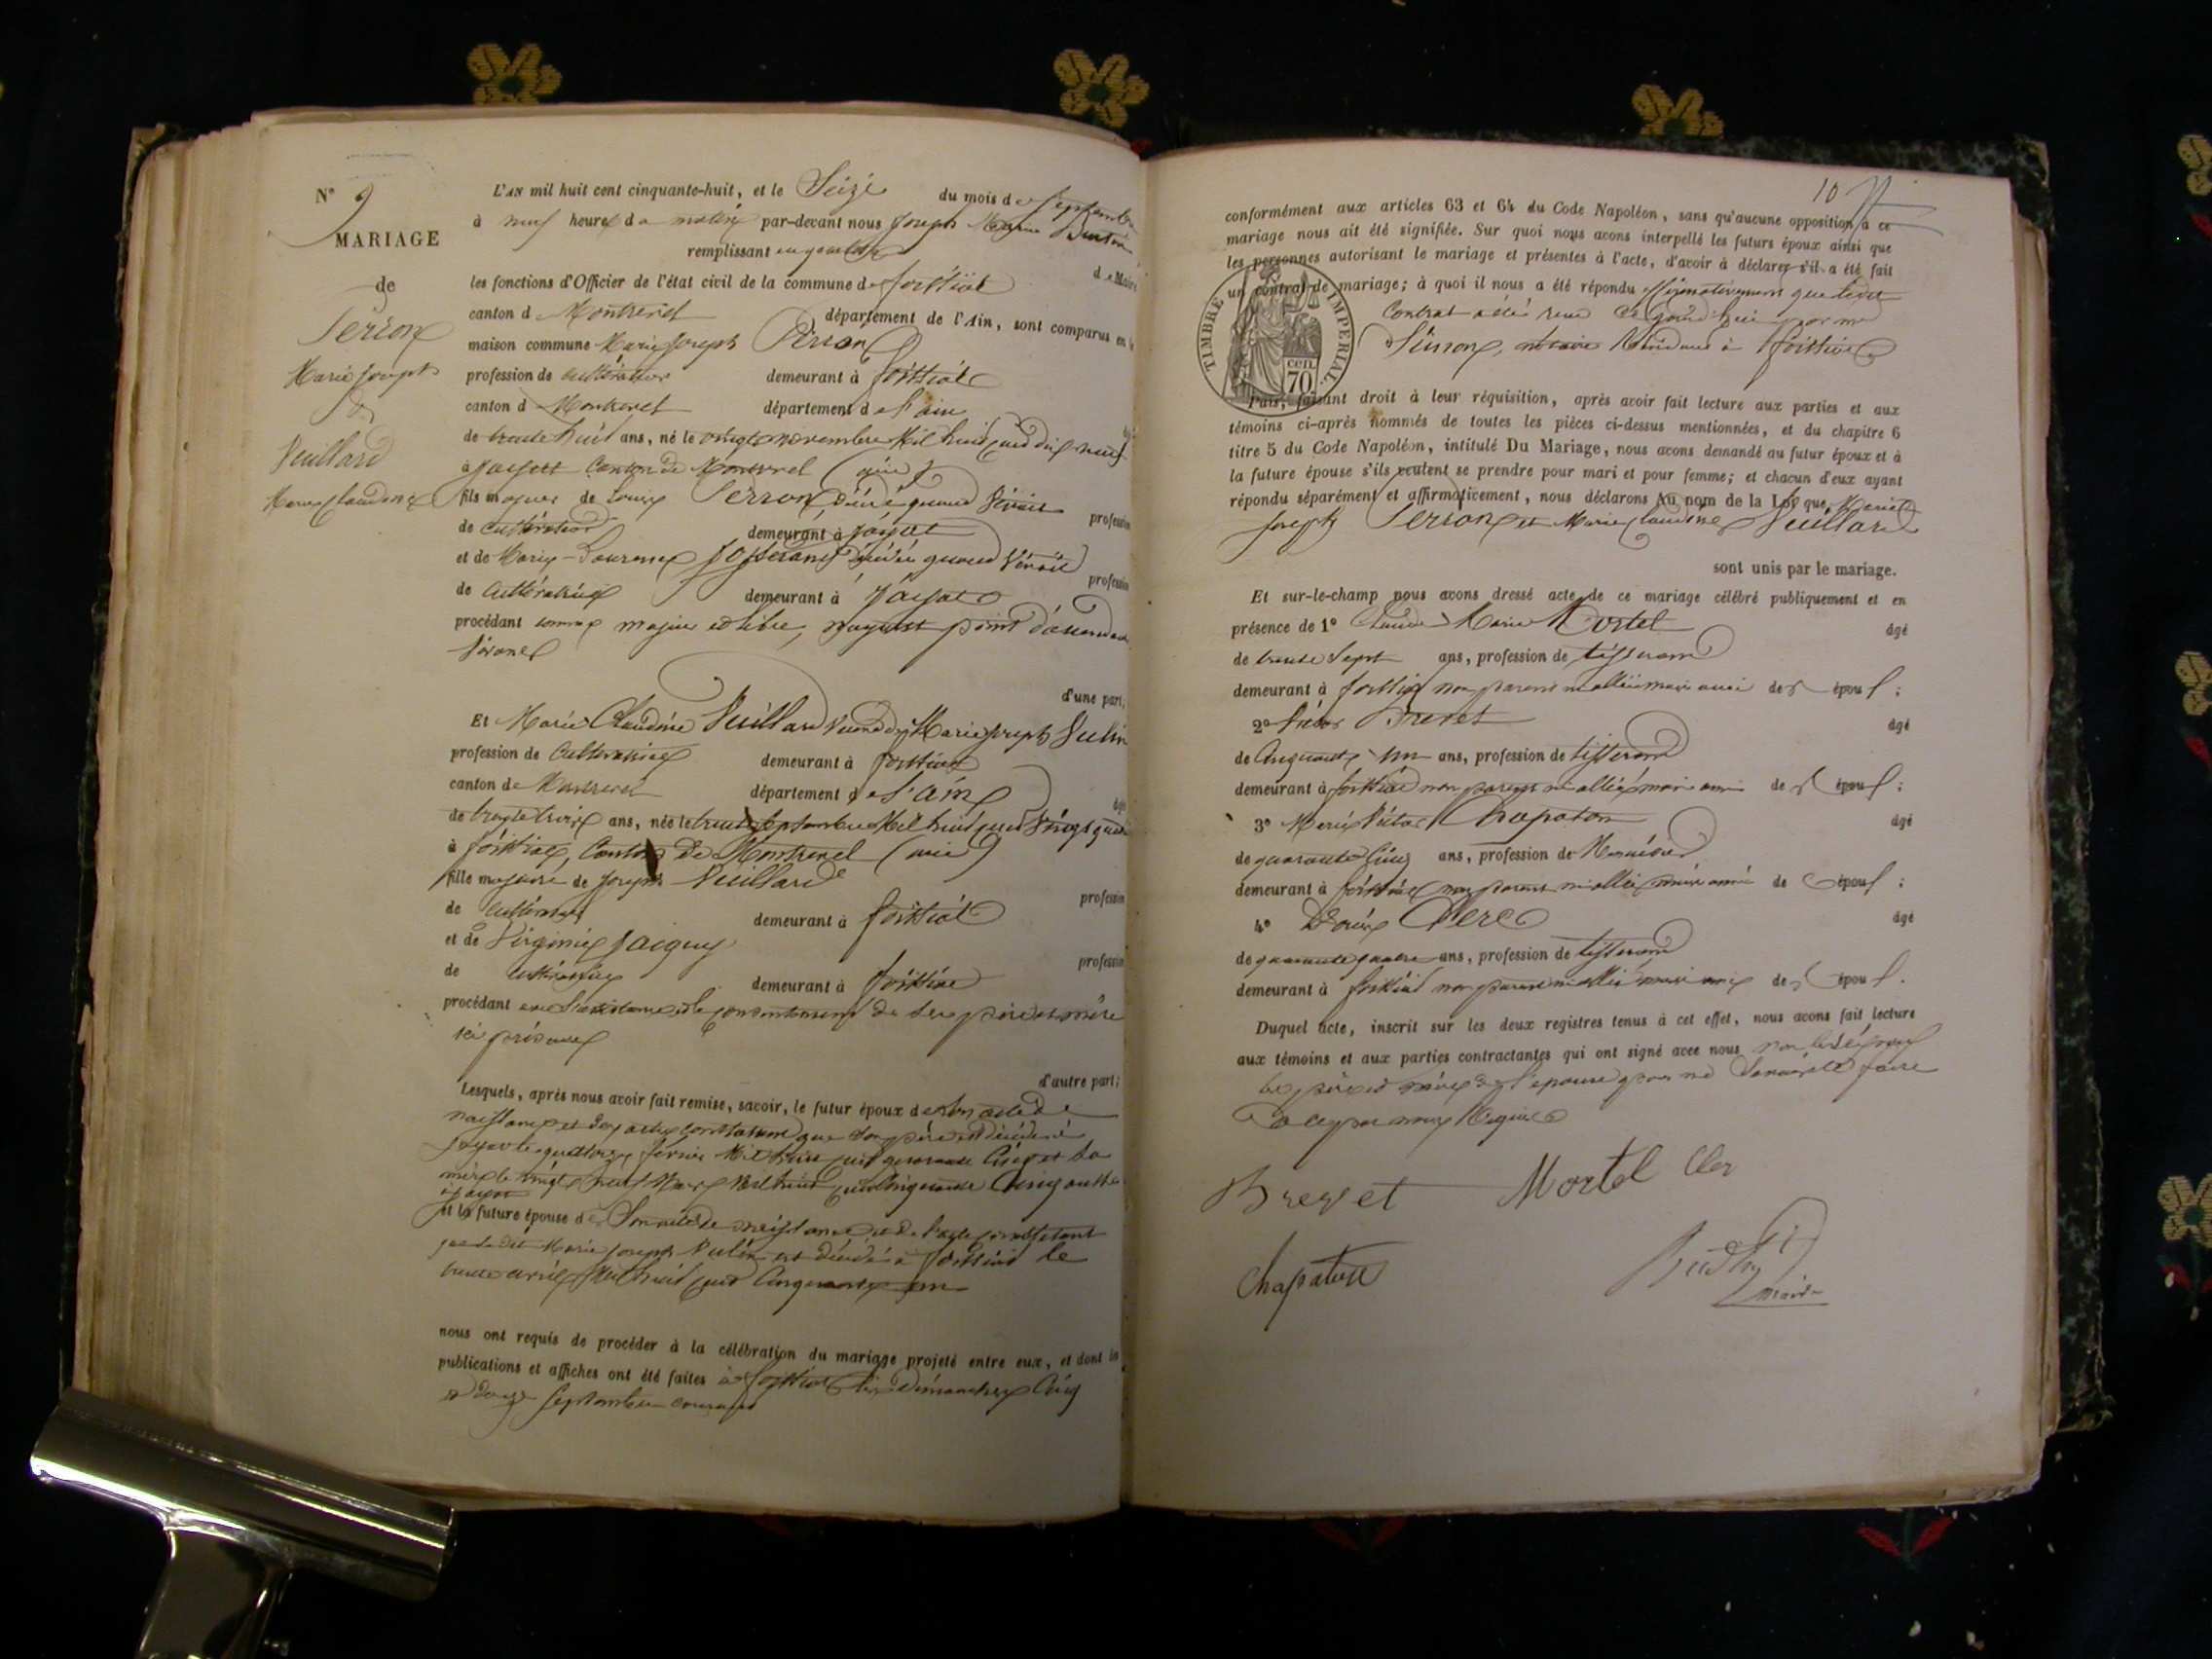 N° 9
MARIAGE
de
Perron
Marie Joseph
&
Vuillard
Marie Claudine
L'AN mil huit cent cinquante-huit, et le Seize du mois de Septembre
à neuf heures du matin par-devant nous Joseph Marie
remplissant en qualité de Maire
les fonctions d'Officier de l'état civil de la commune de foissiat
canton de Montrevel département de l'Ain, sont comparus en la
maison commune Marie Joseph Perron
profession de cultivateur demeurant à foissiat
canton de Montrevel département de l'ain âgé
de trente huit ans, né le vingt novembre Mil huit cent dix neuf
à Jayat Canton de Montrevel (ain)
fils majeur de Louis Perron décédé quand vivait profession
de cultivateur demeurant à Jayat
et de Marie Laurence Josserand décédée quand vivait profession
de cultivatrice demeurant à Jayat
procédant comme majeur et libre, n'ayant point d'ascendant
d'une part;
Et Marie Claudine Vuillard veuve de Marie Joseph Vulin
profession de Cultivatrice demeurant à foissiat
canton de Montrevel département de l'ain âgée
de trente trois ans, née le trente Septembre Mil huit cent vingt quatre
à foissiat, Canton de Montrevel (ain)
fille majeure de Joseph Vuillard profession
de cultivateur demeurant à foissiat
et de Virginie Jacquy profession
de cultivatrice demeurant à foissiat
procédant avec l'assistance et le consentement de ses père et mère
ici présents
d'autre part;
Lesquels, après nous avoir fait remise, savoir, le futur époux de son acte de
naissance et des actes constatant que son père est décédé à
Jayat le quatorze février Mil huit cent quarante Cinq et sa
mère le vingt neuf Mars Mil huit cent cinquante Cinq aussi
à Jayat
et la future épouse de Son acte de naissance et de l'acte constatant
que ledit Marie Joseph Vulin est décédé à foissiat le
trente avril Mil huit cent Cinquante un
nous ont requis de procéder à la célébration du mariage projeté entre eux, et dont les
publications et affiches ont été faites à foissiat les Dimanches Cinq
et douze Septembre courant
10
conformément aux articles 63 et 64 du Code Napoléon, sans qu'aucune opposition à ce
mariage nous ait été signifiée. Sur quoi nous avons interpellé les futurs époux ainsi que
les personnes autorisant le mariage et présentes à l'acte, d'avoir à déclarer s'il a été fait
un contrat de mariage; à quoi il nous a été répondu affirmativement que ledit
Contrat a été reçu ce jourd'hui par me
notaire Résidant à foissiat
TIMBRE IMPERIAL.
CEN. 70
Puis, faisant droit à leur réquisition, après avoir fait lecture aux parties et aux
témoins ci-après nommés de toutes les pièces ci-dessus mentionnées, et du chapitre 6
titre 5 du Code Napoléon, intitulé Du Mariage, nous avons demandé au futur époux et à
la future épouse s'ils veulent se prendre pour mari et pour femme; et chacun d'eux ayant
répondu séparément et affirmativement, nous déclarons au nom de la Loi que Marie
Joseph Perron et Marie Claudine Vuillard
sont unis par le mariage.
Et sur-le-champ nous avons dressé acte de ce mariage célébré publiquement et en
présence de 1° Claude Marie Mortel âgé
de trente Sept ans, profession de tisserand
demeurant à foissiat non parent ni allié mais ami des époux;
2° Brevet âgé
de Cinquante un ans, profession de tisserand
demeurant à foissiat non parent ni allié mais ami des époux;
3° Marie Victor Chapaton âgé
de quarante Cinq ans, profession de Menuisier
demeurant à foissiat non parent ni allié mais ami des époux;
4° Louis Clerc âgé
de quarante quatre ans, profession de tisserand
demeurant à foissiat non parent ni allié mais ami des époux.
Duquel acte, inscrit sur les deux registres tenus à cet effet, nous avons fait lecture
aux témoins et aux parties contractantes qui ont signé avec nous non les époux
les père et mère de l'épouse pour ne Savoir le faire
de ce par nous Requis
Brevet Mortel Cler
Chapaton
maire